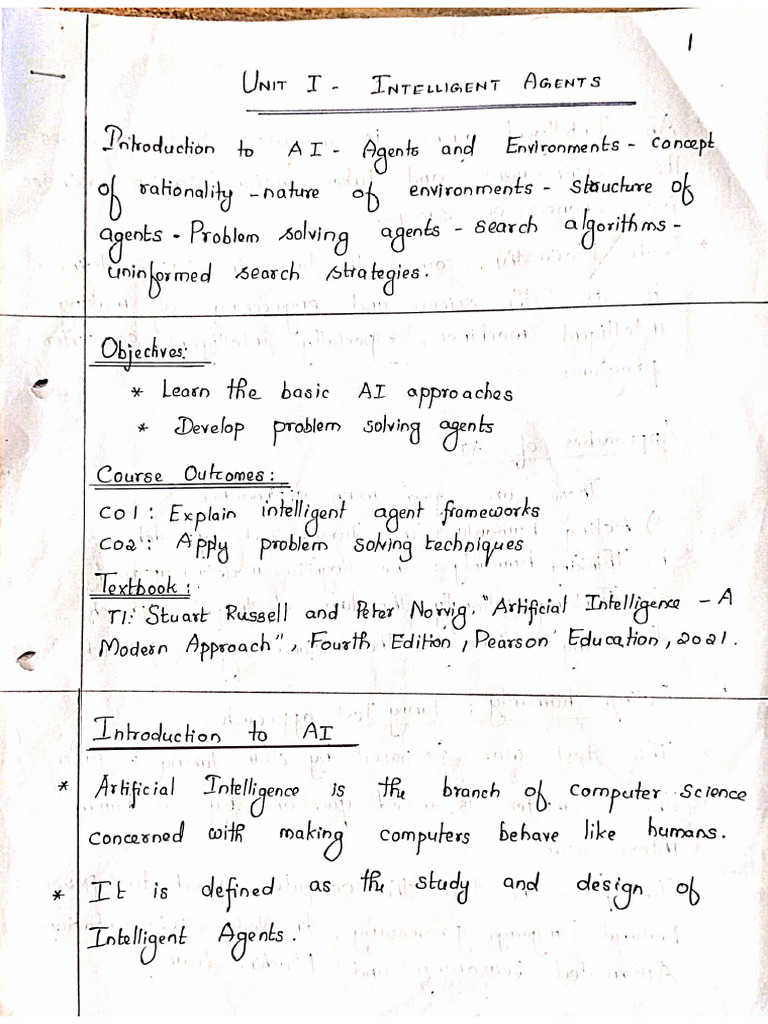 1
UNIT I - INTELLIGENT AGENTS
Introduction to AI - Agents and Environments - concept
of rationality - nature of environments - structure of
agents - Problem solving agents - search algorithms -
uninformed search strategies.
Objectives:
* Learn the basic AI approaches
* Develop problem solving agents
Course Outcomes:
CO1: Explain intelligent agent frameworks
CO2: Apply problem solving techniques
Textbook:
T1: Stuart Russell and Peter Norvig. "Artificial Intelligence - A
Modern Approach", Fourth Edition, Pearson Education, 2021.
Introduction to AI
* Artificial Intelligence is the branch of computer science
concerned with making computers behave like humans.
* It is defined as the study and design of
Intelligent Agents.